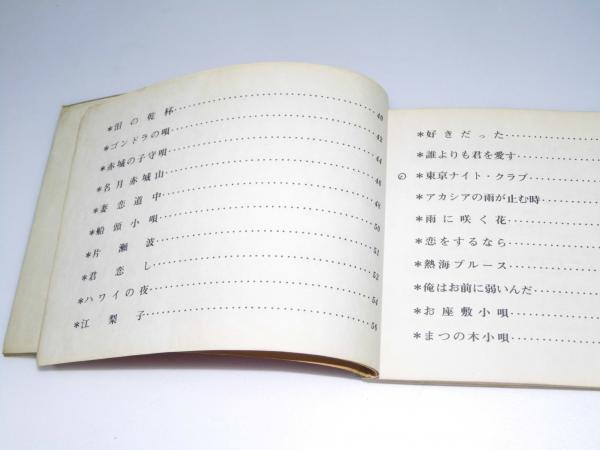 *泪の乾杯……40
*ゴンドラの唄……42
*赤城の子守唄……44
*名月赤城山……46
*妻恋道中……48
*船頭小唄……50
*片瀬波……51
*君恋し……52
*ハワイの夜……54
*江梨子……56
*好きだった……
*誰よりも君を愛す……
*東京ナイト・クラブ……
*アカシアの雨が止む時……
*雨に咲く花……
*恋をするなら……
*熱海ブルース……
*俺はお前に弱いんだ……
*お座敷小唄……
*まつの木小唄……